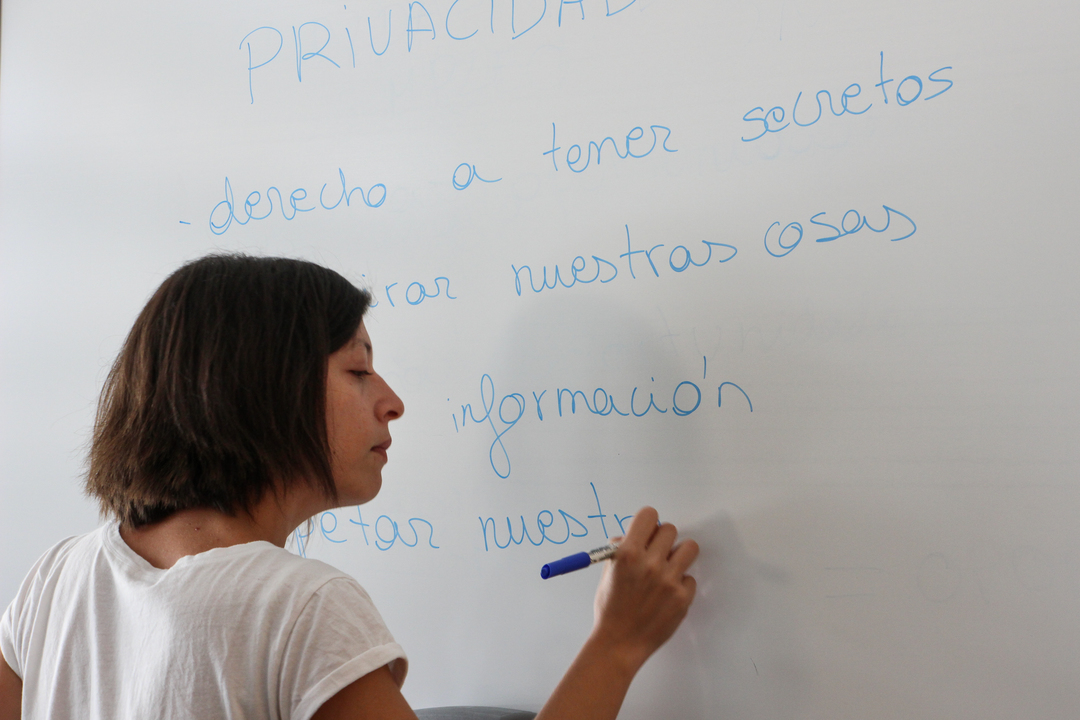 PRIVACIDAD
- derecho a tener secretos
nuestras cosas
información
nuestr